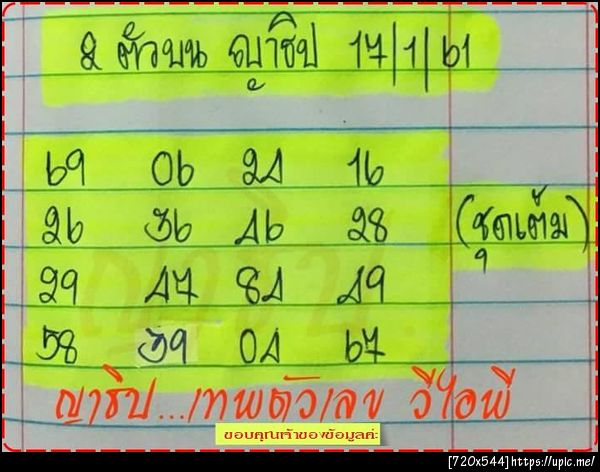 2 ตัวบน ญาธิป 17/1/61
69 06 24 16
26 36 46 28 (ชุดเต้ม)
29 47 84 49
58 39 04 67
ญาธิป...เทพตัวเลข วีไอพี
ขอบคุณเจ้าของข้อมูลค่ะ
[720x544]https://upic.me/